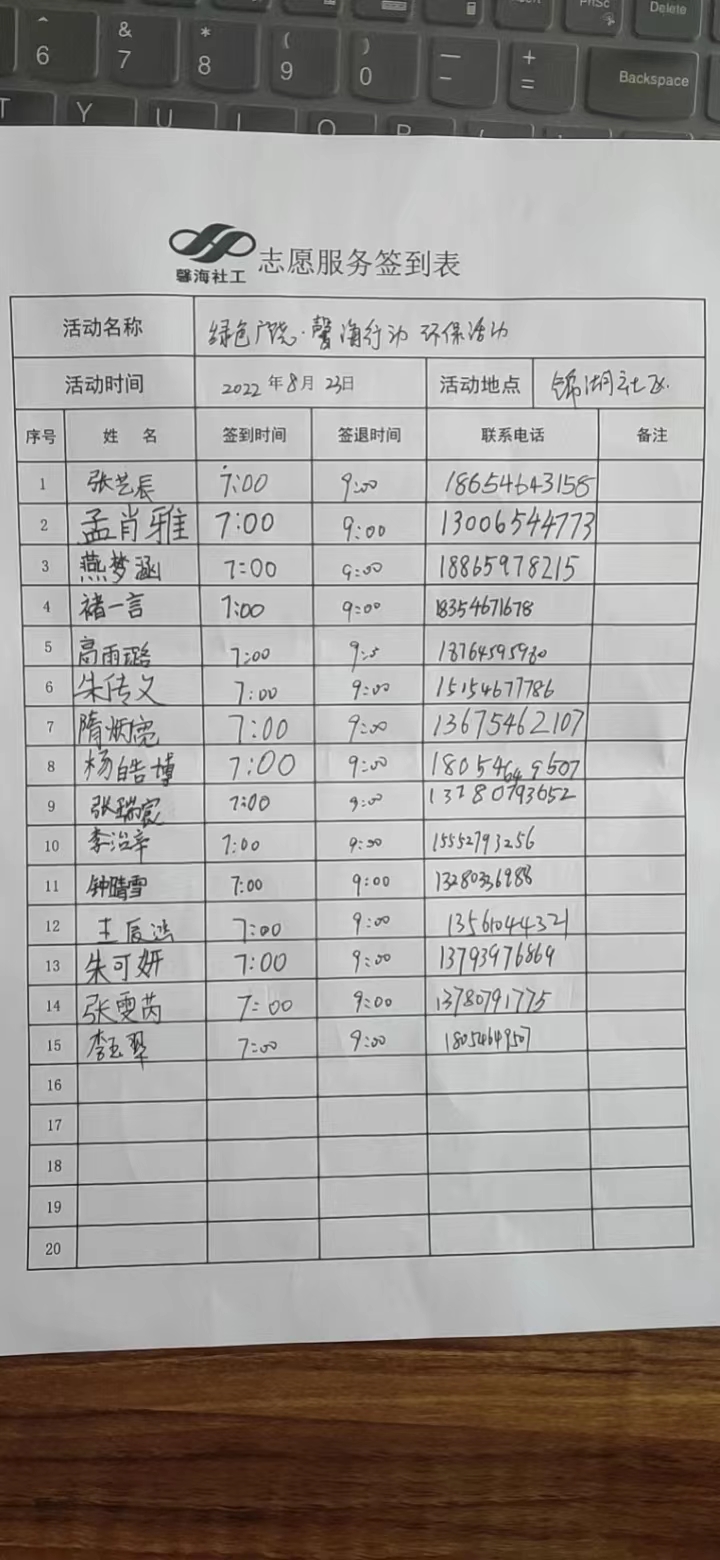 ^
6
&
7
*
8
(
9
)
0
—
-
+
=
Backspace
PrtSc
Delete
T Y U I O P
馨海社工 志愿服务签到表
活动名称 绿色广饶·馨海行动 环保活动
活动时间 2022年8月23日 活动地点 锦湖社区
序号 姓 名 签到时间 签退时间 联系电话 备注
1 张艺辰 7:00 9:00 18654643158
2 孟肖雅 7:00 9:00 13006544773
3 燕梦涵 7:00 9:00 18865978215
4 褚一言 7:00 9:00 18354671678
5 高雨璐 7:00 18764595980
6 朱传义 7:00 9:00 15154677786
7 隋炳宽 7:00 9:00 13675462107
8 杨皓博 7:00 9:00
9 张瑞宸 7:00 9:00
10 李治辛 7:00 9:00 15552793256
11 钟晴雪 7:00 9:00 13280336988
12 王辰浩 7:00 9:00 13561044321
13 朱可妍 7:00 9:00 13793976869
14 张雯芮 7:00 9:00 13780791775
15 李玉翠 7:00 9:00
16
17
18
19
20